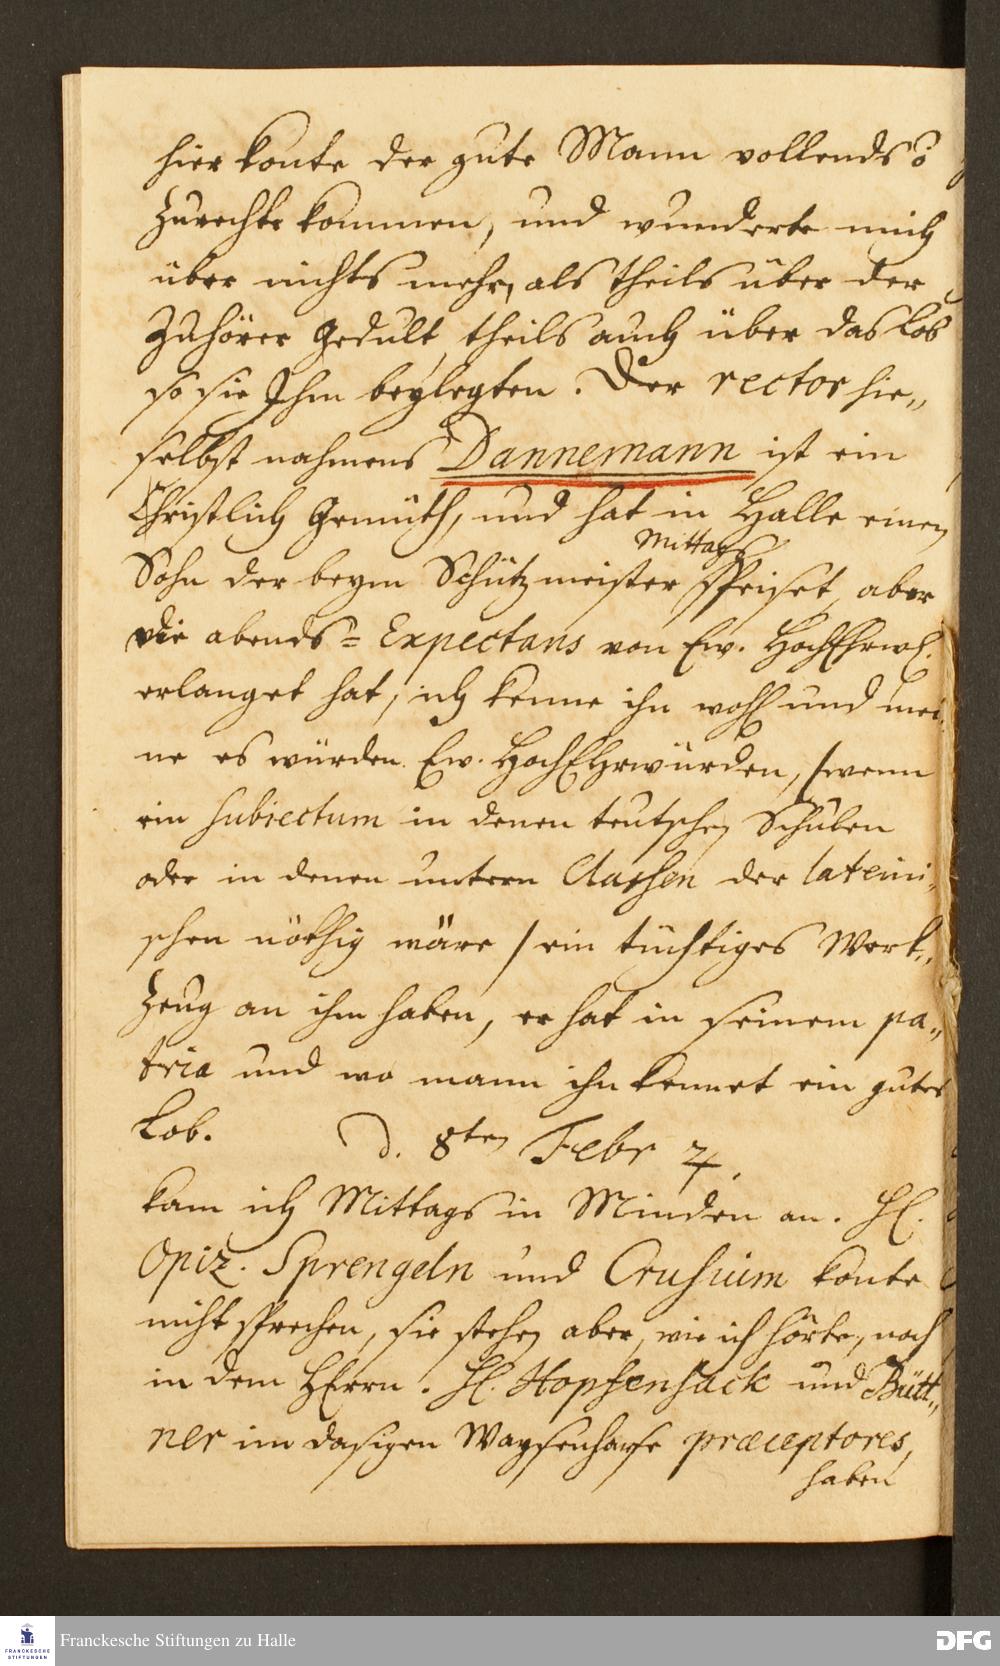 hier konte der gute Mann vollends
zurechte kommen, und wunderte mich
über nichts mehr, als theils über der
Zuhörer Gedult, theils auch über das Lob
so sie Ihm beylegten. Der rector hie„
selbst nahmens Dannemann ist ein
Christlich Gemüth, und hat in Halle einen
Mittags
Sohn der beym Schützmeister speiset, aber
die abends= Expectans von Ew. HochEhrw.
erlanget hat, ich kenne ihn wohl und mei
ne es würden Ew. HochEhrwürden, /wenn
ein subiectum in denen teutschen Schulen
oder in denen untern Classen der lateini„
schen nöthig wäre / ein tüchtiges Werk„
zeug an ihm haben, er hat in seinem pa„
tria und wo mann ihn kennet ein gutes
Lob. d. 8ten Febr ♃.
kam ich Mittags in Minden an. H.
Opiz. Sprengeln und Crusium konte
nicht sprechen, sie stehen aber, wie ich hörte, noch
in dem HErrn. H. Hopfensack und Bütt„
ner im dasigen Waysenhause præceptores,
haben
Franckesche Stiftungen zu Halle
FRANCKESCHE
STIFTUNGEN
DFG